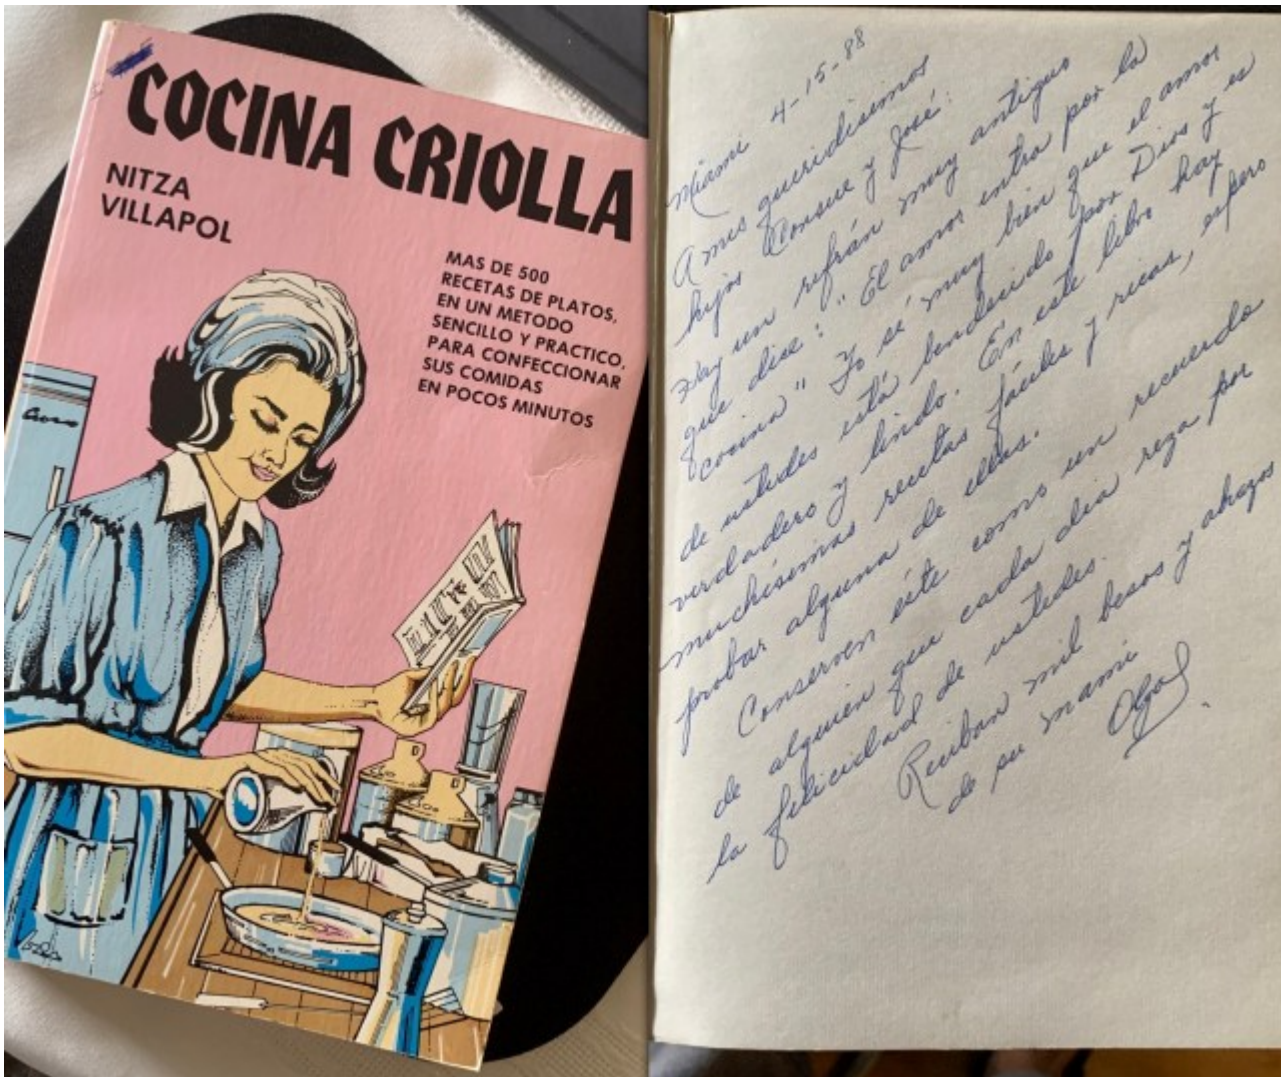 COCINA CRIOLLA
NITZA
VILLAPOL
MAS DE 500
RECETAS DE PLATOS,
EN UN METODO
SENCILLO Y PRACTICO,
PARA CONFECCIONAR
SUS COMIDAS
EN POCOS MINUTOS
Miami 4-15-88
A mis queridísimos
hijos Consue y José:
Hay un refrán muy antiguo
que dice: "El amor entra por la
cocina" Yo sé muy bien que el amor
de ustedes está bendecido por Dios y es
verdadero y lindo. En este libro hay
muchísimas recetas fáciles y ricas, espero
probar alguna de ellas.
Conserven éste como un recuerdo
de alguien que cada día reza por
la felicidad de ustedes.
Reciban mil besos y abrazos
de su mami
Olga